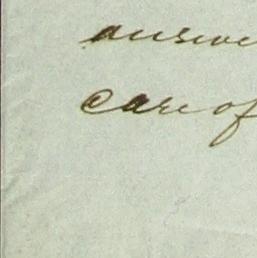 answe
care of